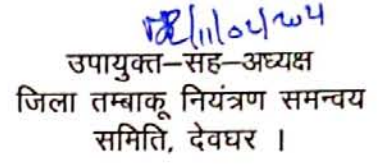 उपायुक्त–सह–अध्यक्ष
जिला तम्बाकू नियंत्रण समन्वय
समिति, देवघर ।